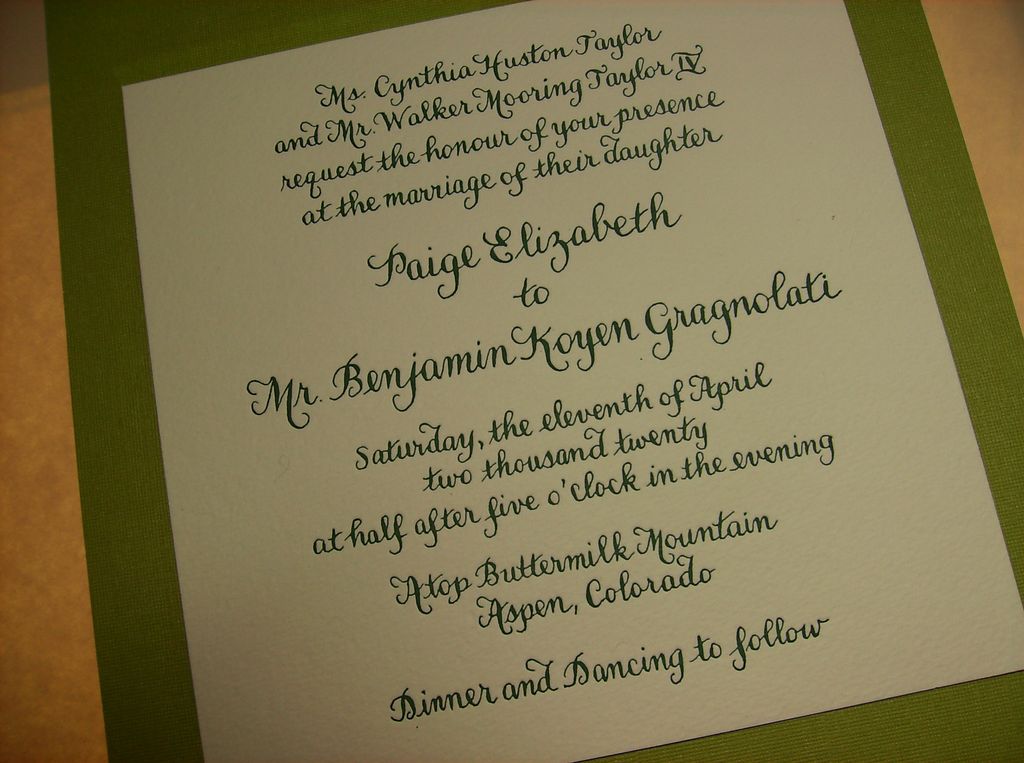 Ms. Cynthia Huston Taylor
and Mr. Walker Mooring Taylor IV
request the honour of your presence
at the marriage of their daughter
Paige Elizabeth
to
Mr. Benjamin Koyen Gragnolati
Saturday, the eleventh of April
two thousand twenty
at half after five o'clock in the evening
Atop Buttermilk Mountain
Aspen, Colorado
Dinner and Dancing to follow